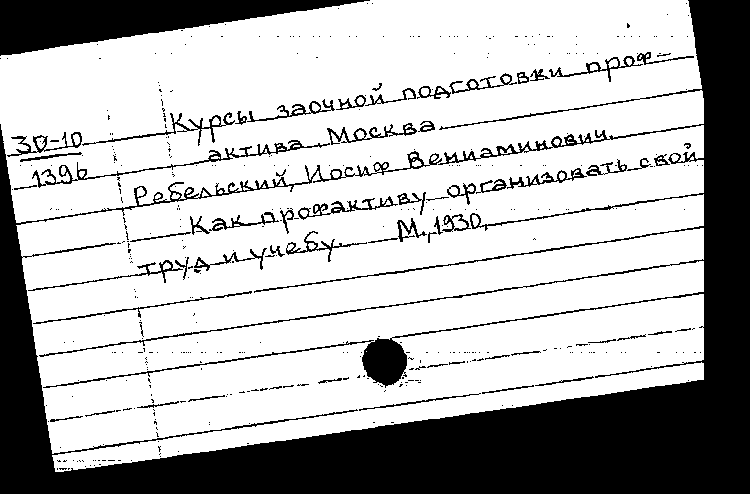 Курсы заочной подготовки проф-
30-10
актива. Москва.
139б
Ребельский, Иосиф Вениаминович.
Как профактиву организовать свой
труд и учебу. М., 1930.